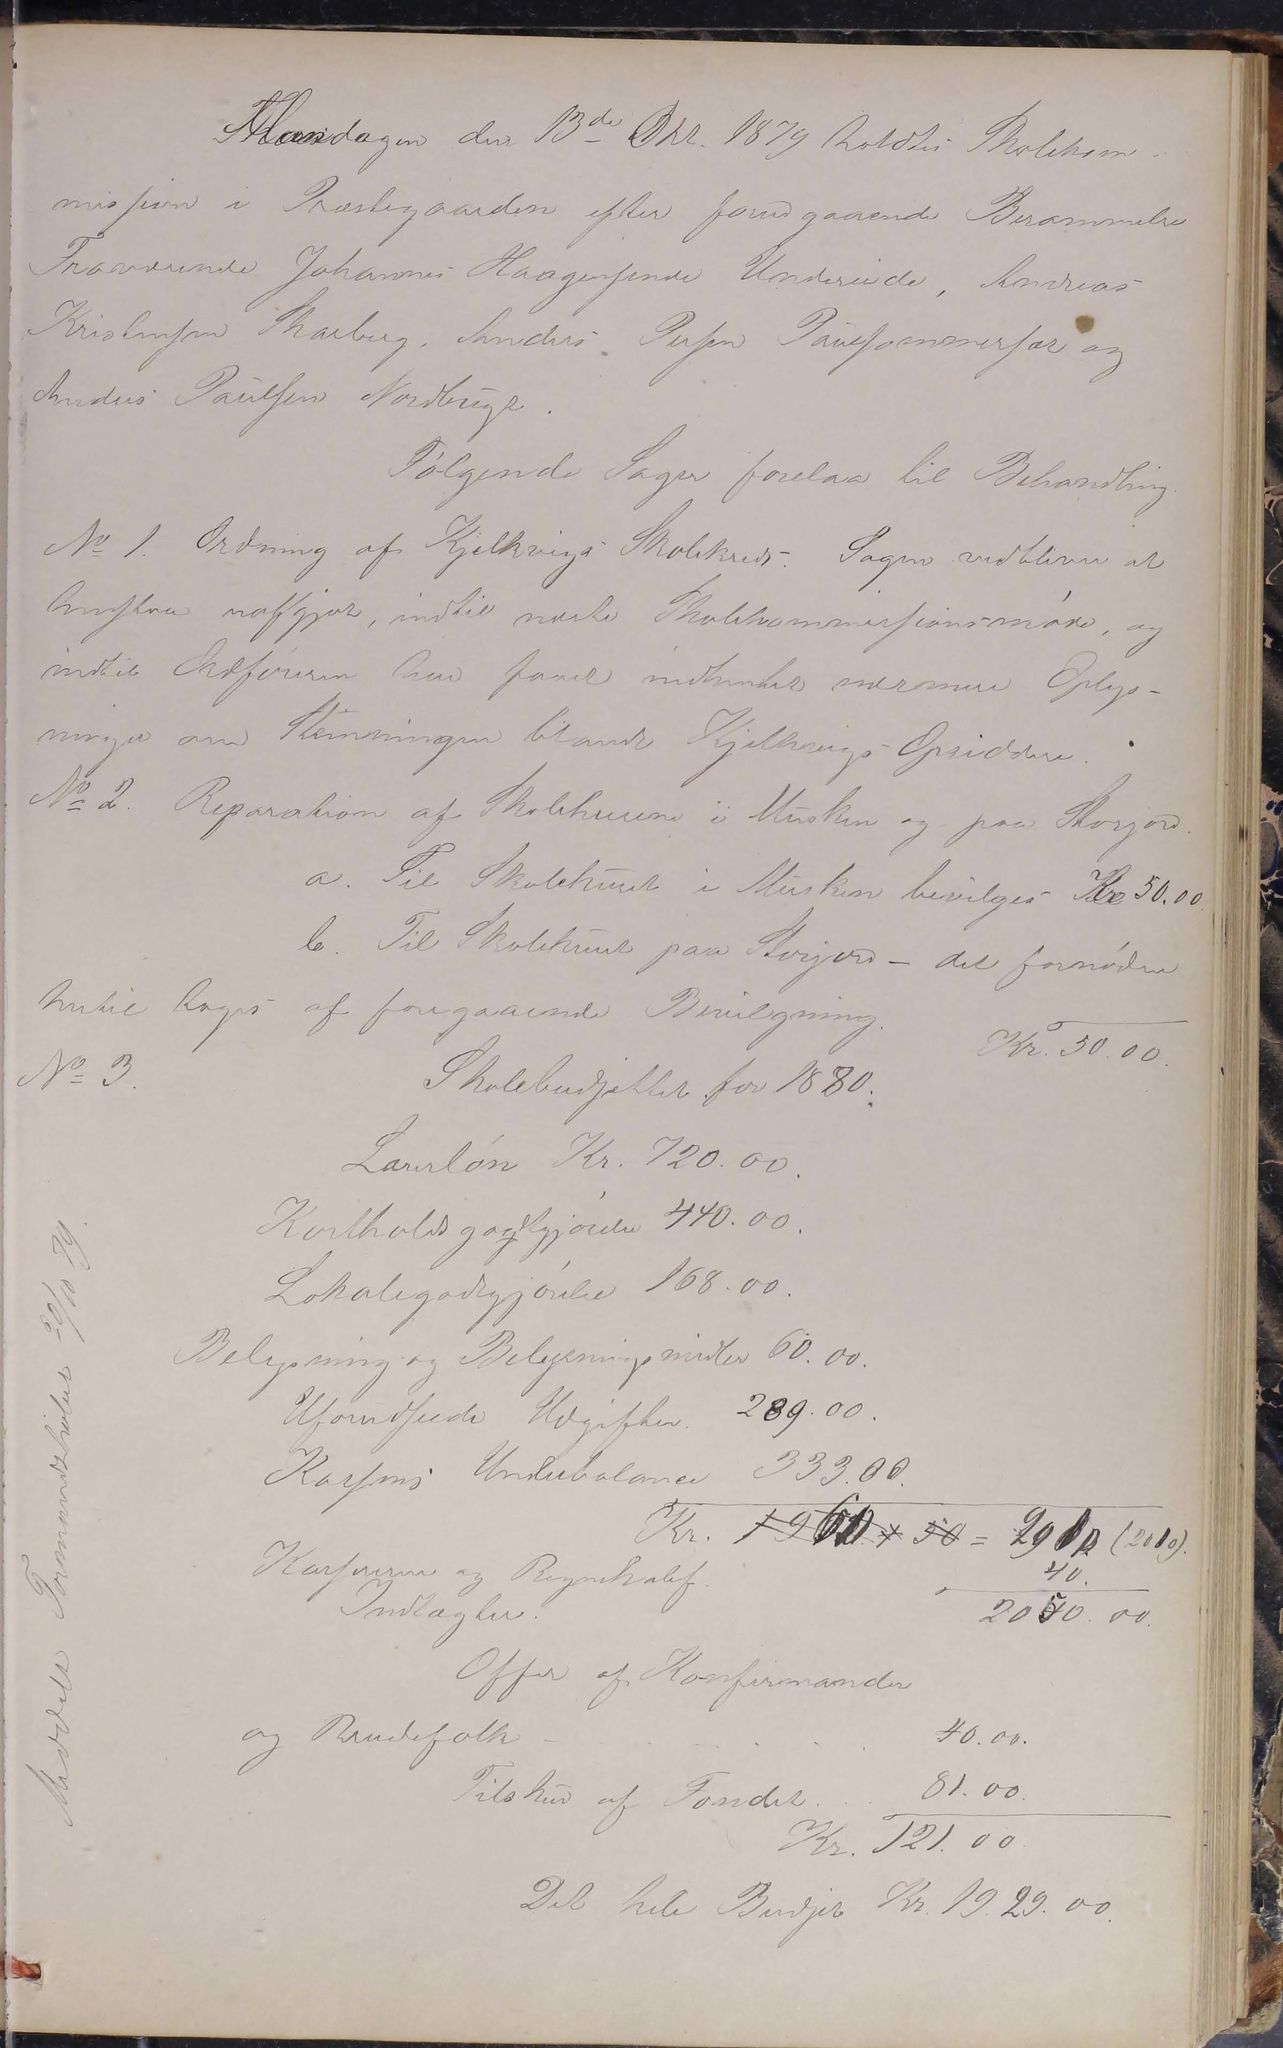 Mandagen den 13de Okt. 1879 holdtes Skolekom-
mission i Præstegaarden efter forudgaaende Berammelse
Fraværende Johannes Haagensen Undereide, Andreas
Kristensen Skarberg, Anders Persen Pausommersæt og
Anders Paulsen Nordbugt.
Følgende Sager forelaa til Behandling.
No 1. Ordning af Kjelkvigs Skolekreds. Sagen vedbliver at
henstaa uafgjort, indtil næste Skolekommissionsmøde, og
indtil Ordføreren har faaet indhentet nærmere Oplys-
ninger om Stemningen blandt Kjelkvigs Opsiddere.
No 2. Reparation af Skolehusene i Musken og paa Storjord.
a. Til Skolehuset i Musken bevilges Kr 50.00
b. Til Skolehuset paa Storjord – det fornødne
hertil tages af foregaaende Bevilgning.
Kr. 50.00.
No 3. Skolebudjettet for 1880.
Lærerløn Kr. 720.00.
Kostholdsgodtgjørelse 440.00.
Lokalegodtgjørelse 168.00.
Belysning og Belysningsmidler 60.00.
Uforudseede Udgifter. 289.00.
Kassens Underbalance 333.00.
Kr. 1960 + 50 = 2010 (2010).
Kasserer og Regnskabsf. 40.
Indtægter. 2050.00.
Offer af Konfirmander
og Brudefolk 40.00.
Tilskud af Fondet . . 81.00.
Kr. 121.00
Det hele Budjet Kr. 1929.00.
Meddelt Formandskabet 20/10 79.